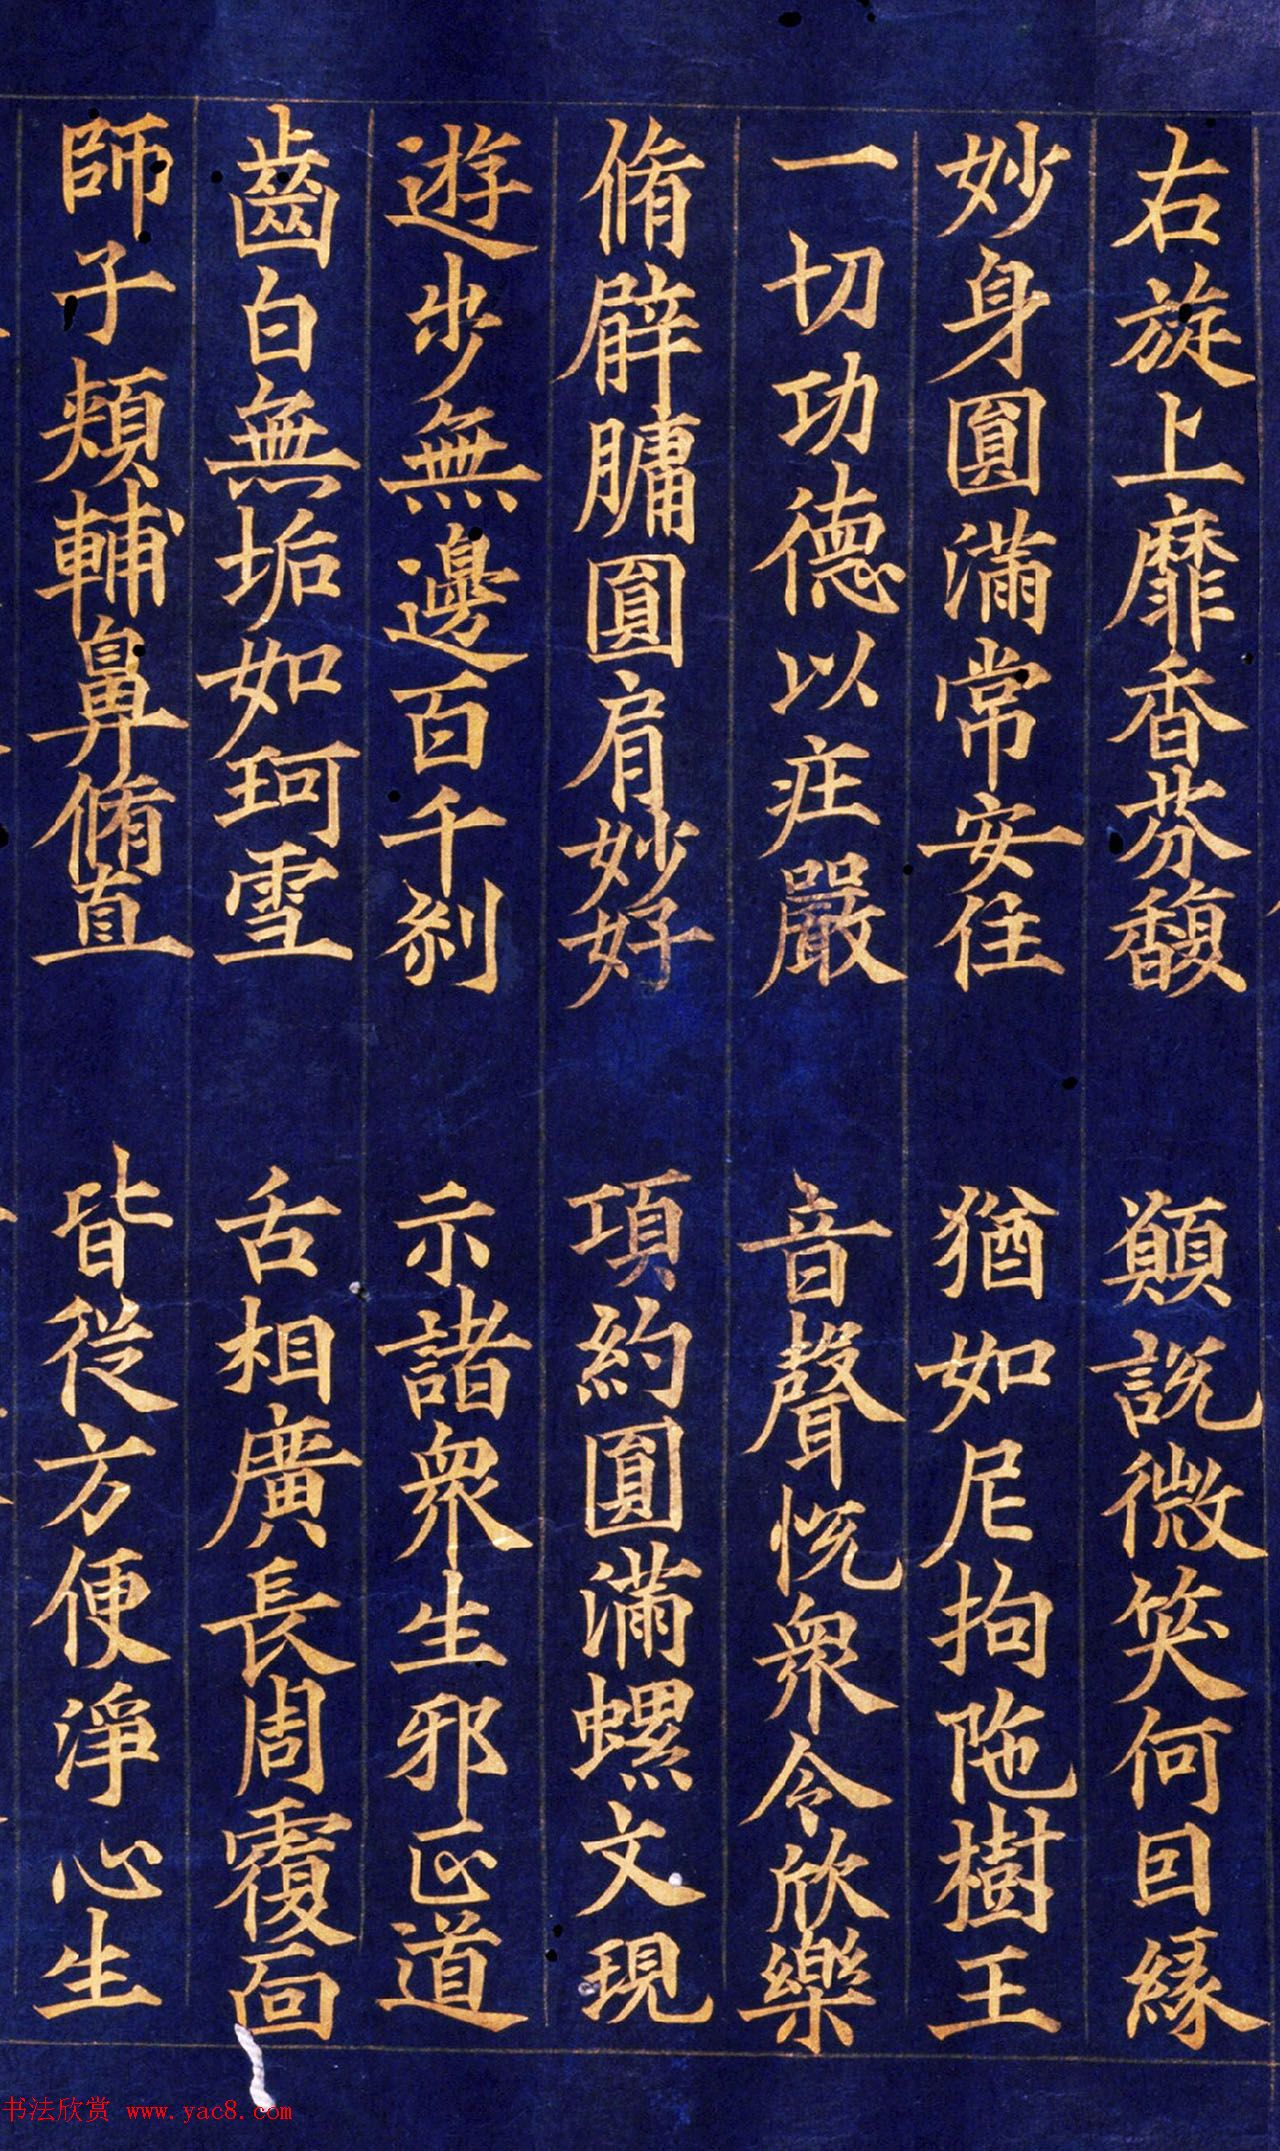 右旋上靡香芬馥 願説微笑何因緣
妙身圓滿常安住 猶如尼拘陁樹王
一切功德以庄嚴 音聲恱衆令欣樂
脩臂𦟛圓肩妙好 項約圓滿螺文現
遊步無邊百千刹 示諸衆生邪正道
齒白無垢如珂雪 舌相廣長周覆面
師子頰輔鼻脩直 皆從方便淨心生
书法欣赏 www.yac8.com